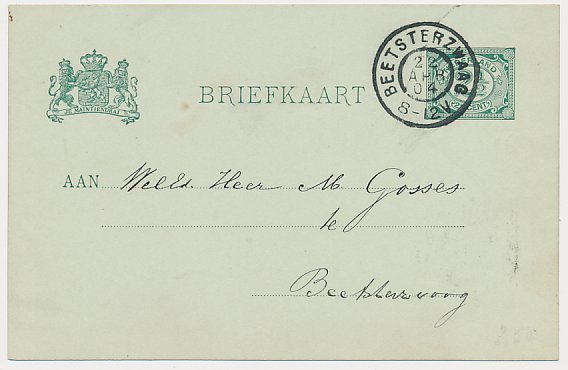 JE MAINTIENDRAI
BRIEFKAART
BEETSTERZWAAG
APR
04
8-12V
AAN Heer M Gosses
te
Beetsterzwaag